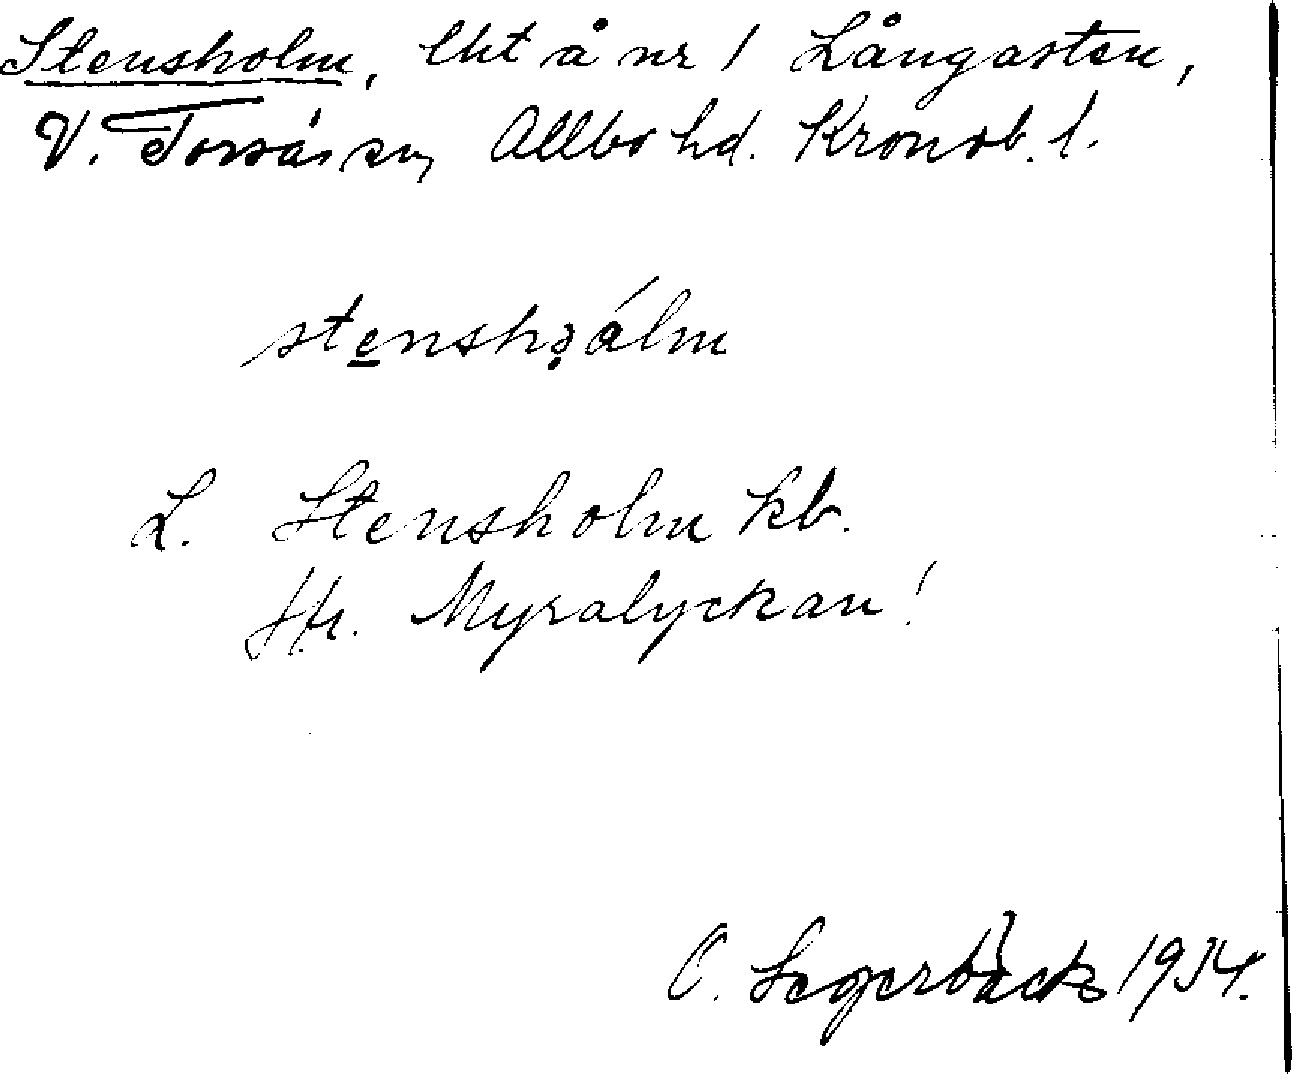 Stensholm, lht å nr 1 Långasten,
V. Torsås sn, Allbo hd. Kronob. l.
stensho̤álm
L. Stensholm kb.
Jfr. Myralyckan!
O. Segerbäck 1934.